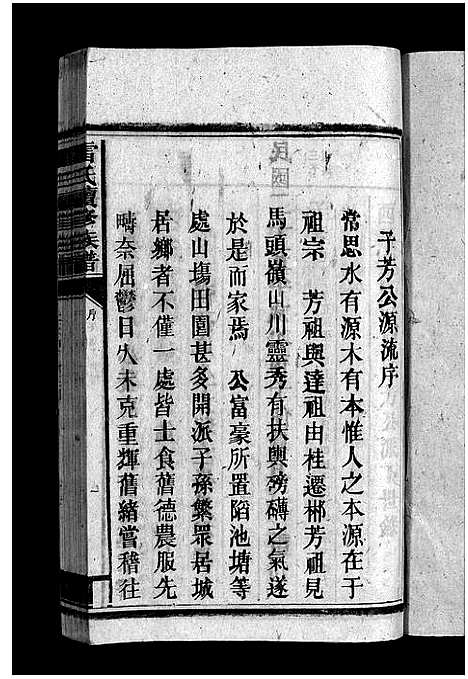 子芳公源流序
常思水有源木有本惟人之本源在于
祖宗　芳祖與達祖由桂遷郴芳祖見
馬頭嶺山川靈秀有扶輿磅礴之氣遂
於是而家焉　公富豪所置陷池塘等
處山塲田園甚多開派子孫繁眾居城
居鄉者不僅一處皆士食舊德農服先
疇奈屈鬱日久未克重輝舊緒嘗稽往
雷氏續修族譜
序
一
民國